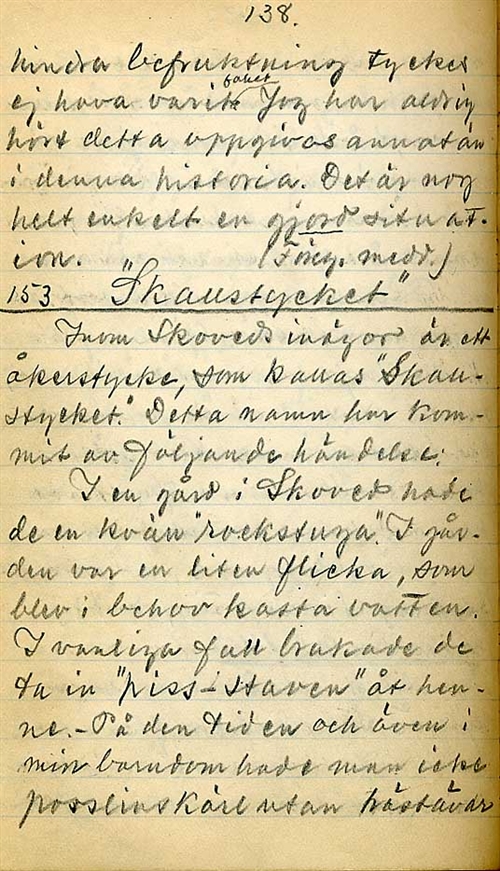 138.
hindra befruktning tyckes
ej hava varit fallet. Jag har aldrig
hört detta uppgivas annat än
i denna historia. Det är nog
helt enkelt en gjord situat-
ion. (Föreg. medd.)
153 "Skaustycket"
Inom Skoveds inägor är ett
åkerstycke, som kallas "Skau-
stycket". Detta namn har kom-
mit av följande händelse:
I en gård i Skoved hade
de en kväll "rockstuga". I går-
den var en liten flicka, som
blev i behov kasta vatten.
I vanliga fall brukade de
ta in "piss-staven" åt hen-
ne. - På den tiden och även i
min barndom hade man icke
posslinskärl utan trästävar